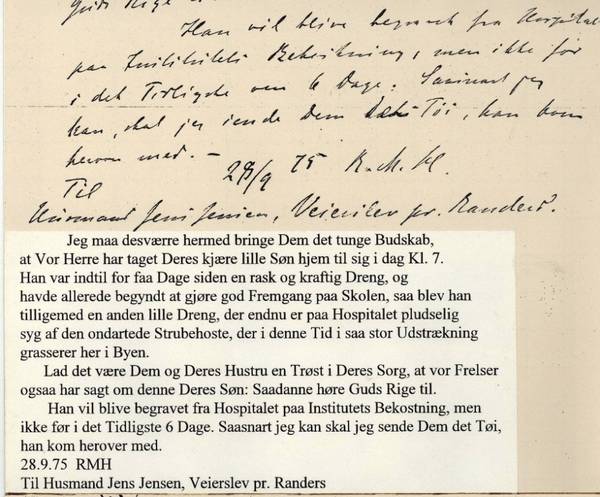 Guds Rige
Han vil blive begravet fra Hospital
paa Institutets Bekostning, men ikke før
i det Tidligste om 6 Dage. Saasnart jeg
kan, skal jeg sende Dem det Tøi, han kom
herover med. –
28/9 75 R.M.H.
Til
Husmand Jens Jensen, Veierslev pr. Randers.
Jeg maa desværre hermed bringe Dem det tunge Budskab,
at Vor Herre har taget Deres kjære lille Søn hjem til sig i dag Kl. 7.
Han var indtil for faa Dage siden en rask og kraftig Dreng, og
havde allerede begyndt at gjøre god Fremgang paa Skolen, saa blev han
tilligemed en anden lille Dreng, der endnu er paa Hospitalet pludselig
syg af den ondartede Strubehoste, der i denne Tid i saa stor Udstrækning
grasserer her i Byen.
Lad det være Dem og Deres Hustru en Trøst i Deres Sorg, at vor Frelser
ogsaa har sagt om denne Deres Søn: Saadanne høre Guds Rige til.
Han vil blive begravet fra Hospitalet paa Institutets Bekostning, men
ikke før i det Tidligste 6 Dage. Saasnart jeg kan skal jeg sende Dem det Tøi,
han kom herover med.
28.9.75 RMH
Til Husmand Jens Jensen, Veierslev pr. Randers